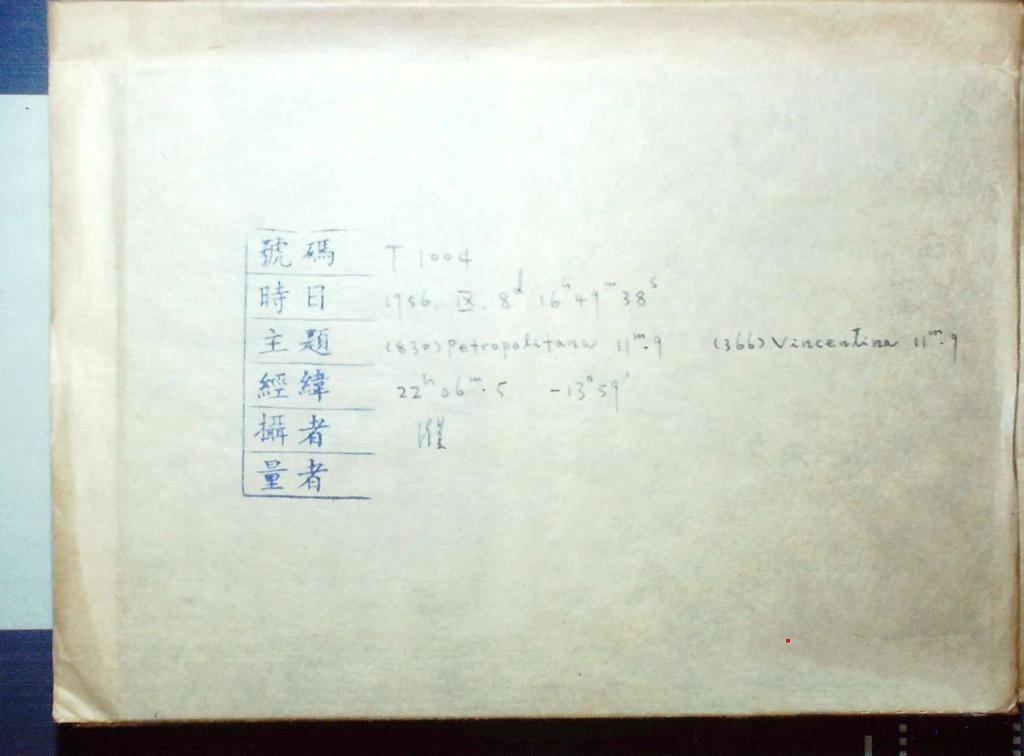 號碼 T 1004
時日 1956. IX. 8ᵈ 16ʰ 49ᵐ 38ˢ
主題 (830) Petropolitana 11ᵐ.9 (366) Vincentina 11ᵐ.9
經緯 22ʰ 06ᵐ.5 -13°59'
攝者
量者